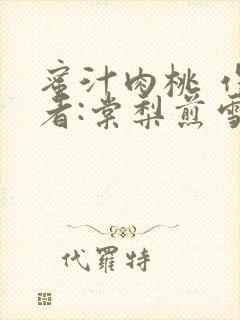 蜜汁肉桃
者:棠梨煎雪
代羅特